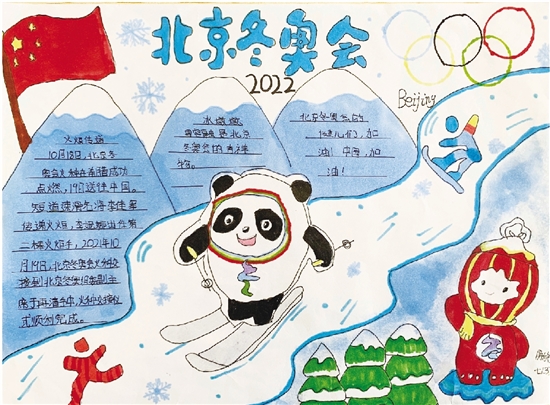 北京冬奥会
2022
Beijing
火炬传递
10月18日,北京冬
奥会火种在希腊成功
点燃,19日送往中国。
短道速滑
火炬,
二棒火炬手,2021年10
月19日,北京冬奥会火种交
接
北京冬奥组委副主
席于再清手中,火种交接仪
式顺利完成。
冰墩墩
是北京
冬奥会的吉祥
物。
北京冬奥会的
们,加
油!中国,加
油!